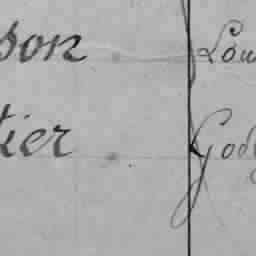 son Lou
tier God